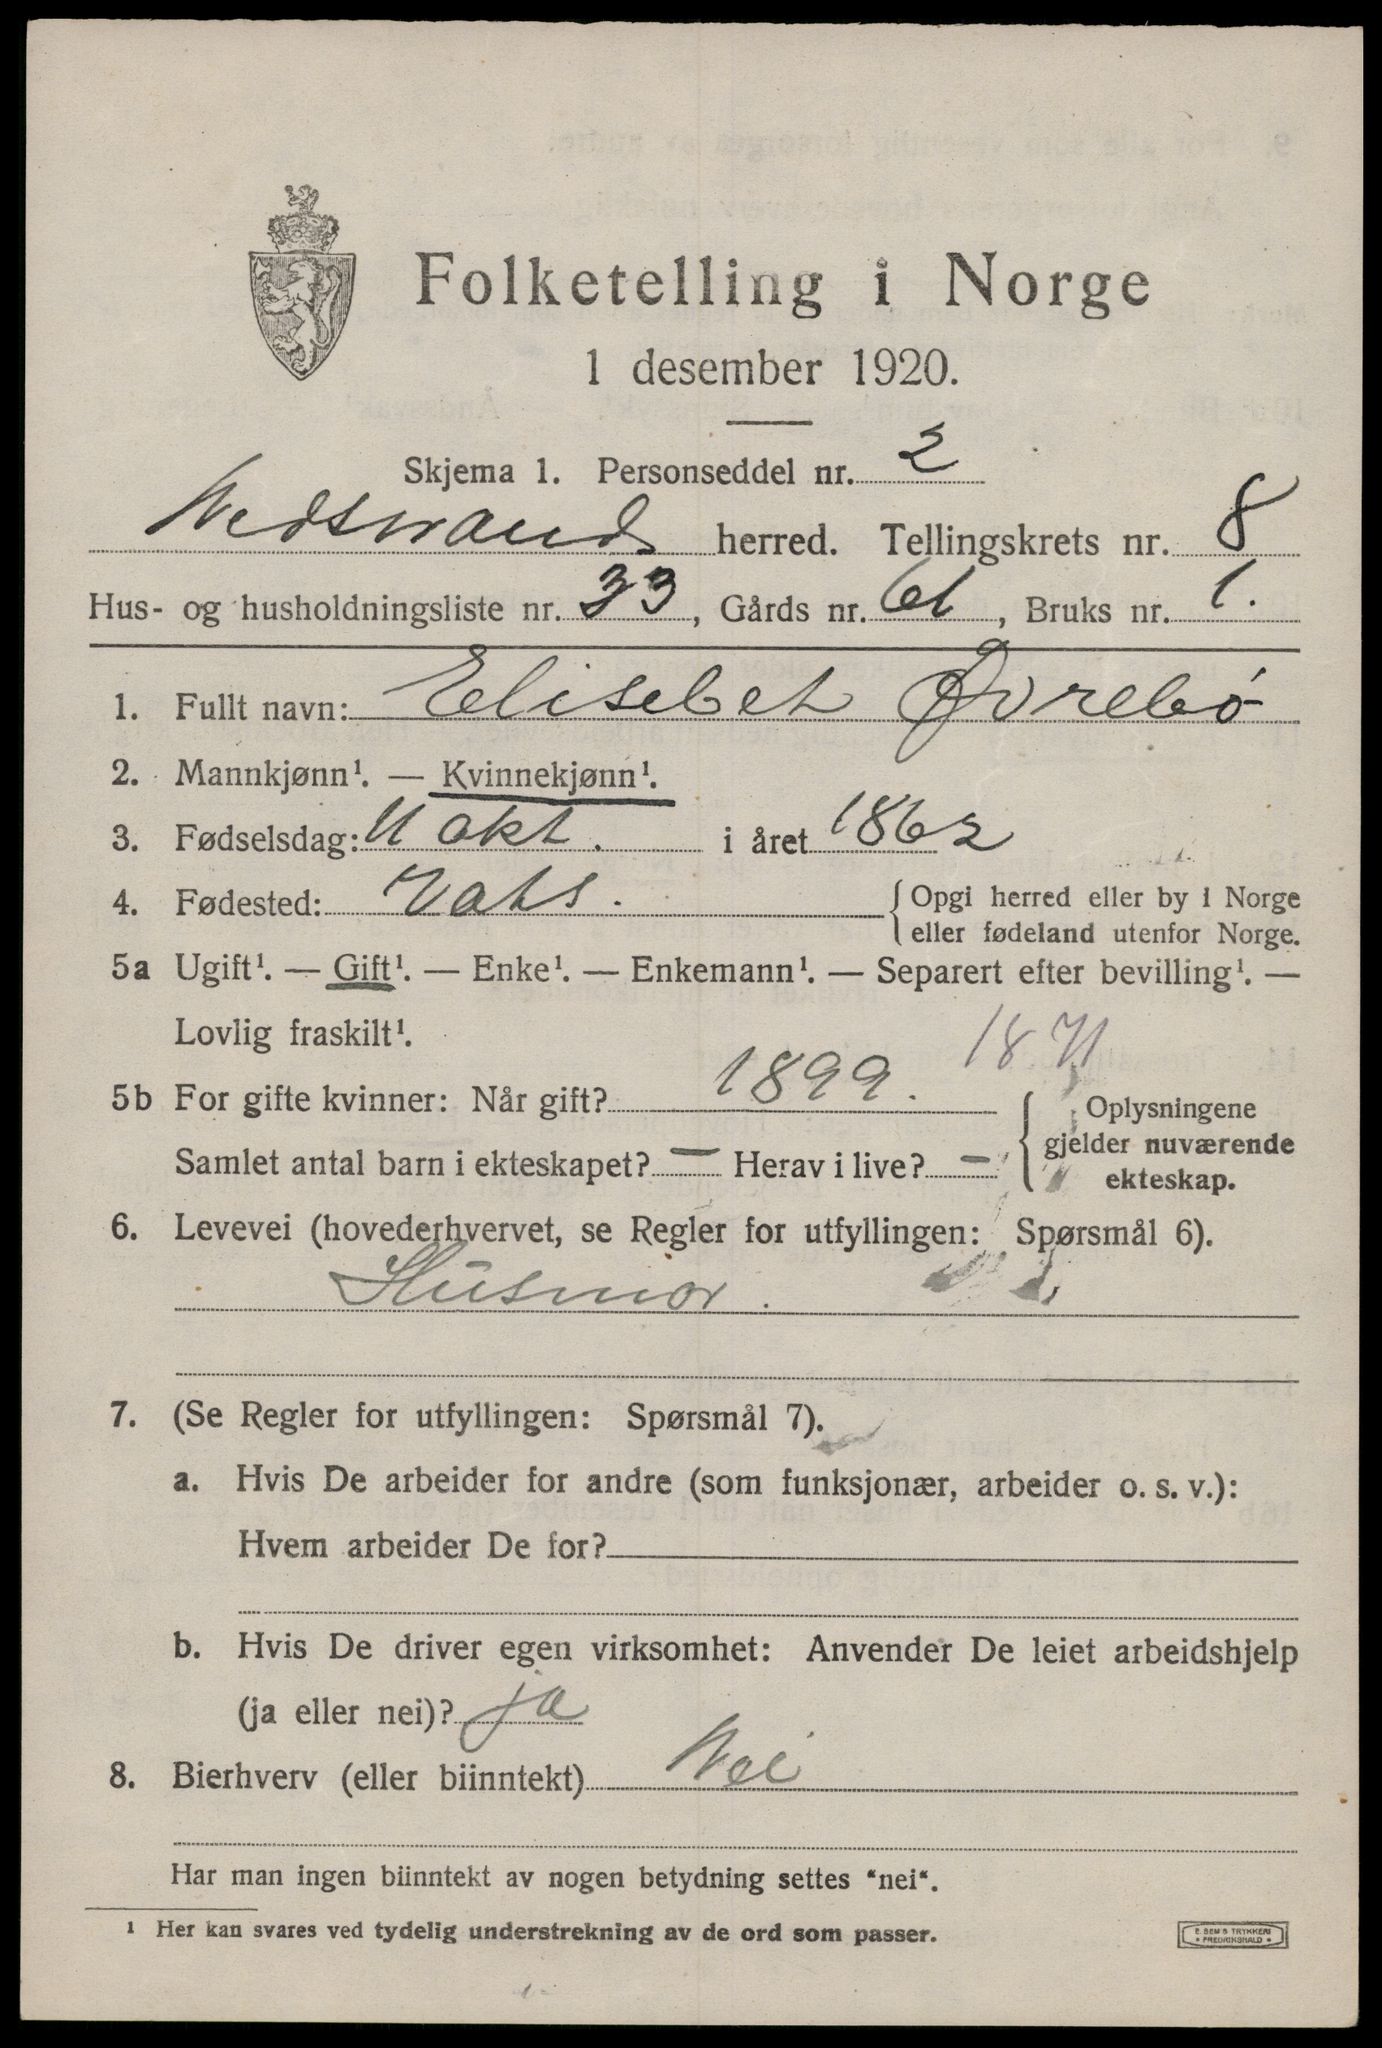 Folketelling i Norge
1 desember 1920.
Skjema 1. Personseddel nr. 2
Nedstrand herred. Tellingskrets nr. 8
Hus- og husholdningsliste nr. 33, Gårds nr. 61, Bruks nr. 1.
1. Fullt navn: Elisebet Øvrebø
2. Mannkjønn¹. — Kvinnekjønn¹.
3. Fødselsdag: 11 okt. i året 1862
4. Fødested: Vats. { Opgi herred eller by i Norge
eller fødeland utenfor Norge.
5a Ugift¹. — Gift¹. — Enke¹. — Enkemann¹. — Separert efter bevilling¹. —
Lovlig fraskilt¹.
1871
5b For gifte kvinner: Når gift? 1899. { Oplysningene
gjelder nuværende
ekteskap.
Samlet antal barn i ekteskapet? — Herav i live? —
6. Levevei (hovederhvervet, se Regler for utfyllingen: Spørsmål 6).
Husmor.
7. (Se Regler for utfyllingen: Spørsmål 7).
a. Hvis De arbeider for andre (som funksjonær, arbeider o. s. v.):
Hvem arbeider De for?
b. Hvis De driver egen virksomhet: Anvender De leiet arbeidshjelp
(ja eller nei)? ja
8. Bierhverv (eller biinntekt) Nei
Har man ingen biinntekt av nogen betydning settes "nei".
¹ Her kan svares ved tydelig understrekning av de ord som passer.
E. SEM'S TRYKKERI
* FREDRIKSHALD *